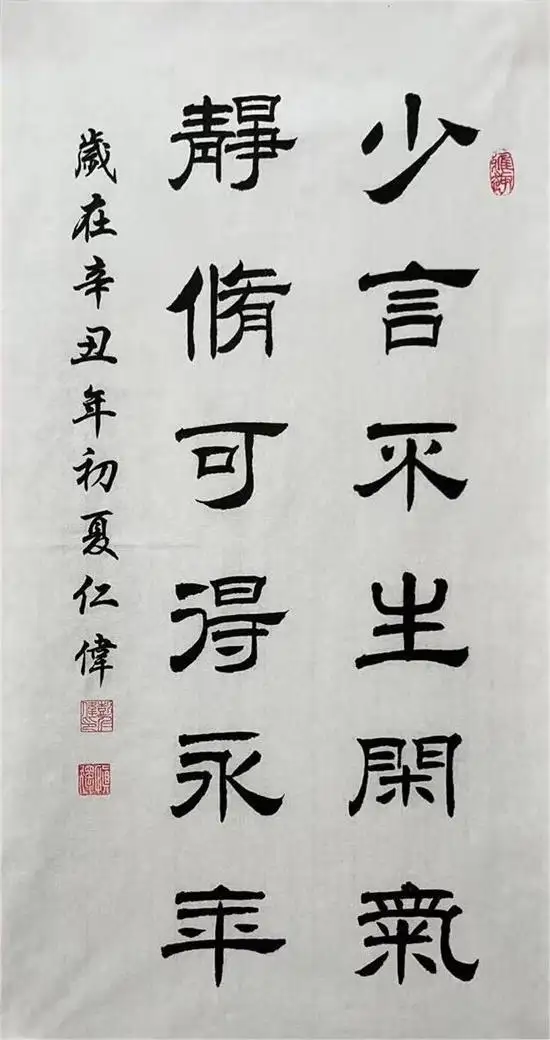 少言不生閑氣
靜脩可得永年
歲在辛丑年初夏仁偉